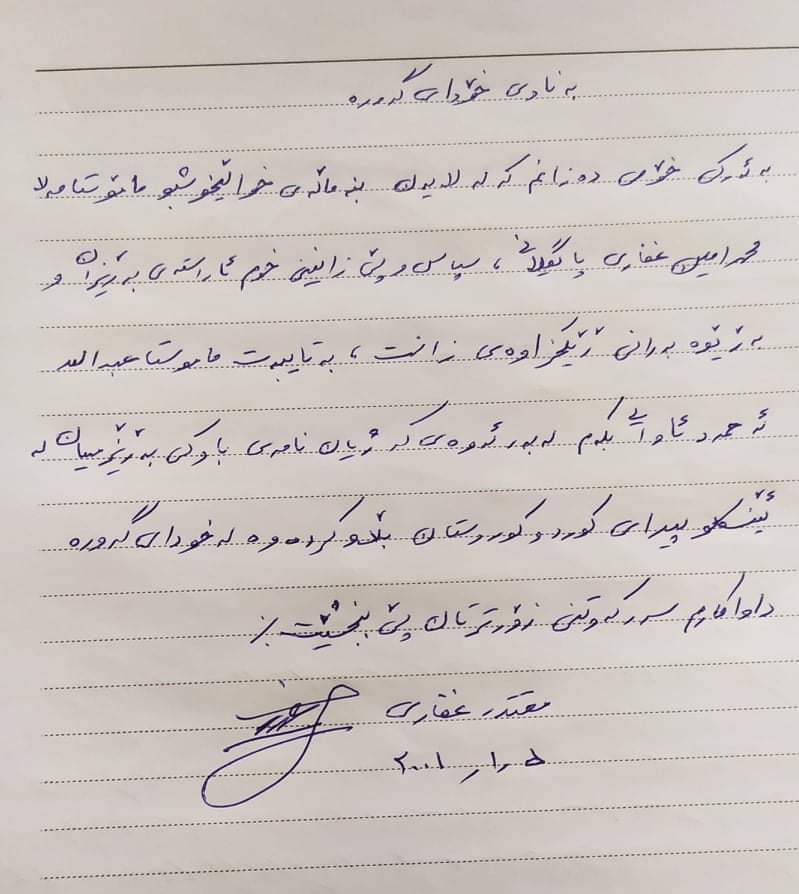 بە ناوی خۆدای گەورە
بە ئەرکی خۆم دەزانم کە لە لایەن بنەماڵەی خوالێخۆشبو مامۆستا مەلا
محمد امین غفاری پاگلانی، سپاس و پێزانینی خوم ئاراستەی بەڕێزان و
بەڕێوەبەرانی ڕێکخراوەی زانست، بەتایبەت ماموستا عبداللە
ئەحمەد ئاوایی بکەم لەبەر ئەوەی کە ژیان نامەی باوکی بەڕێزمیان لە
ئێنسکلوپیدای کوردوکوردوستان بڵاوکردەوە لە خودای گەورە
داواکارم سەرکەوتنی زۆرترتان پێ ببخشێت.
مقتدر غفاری